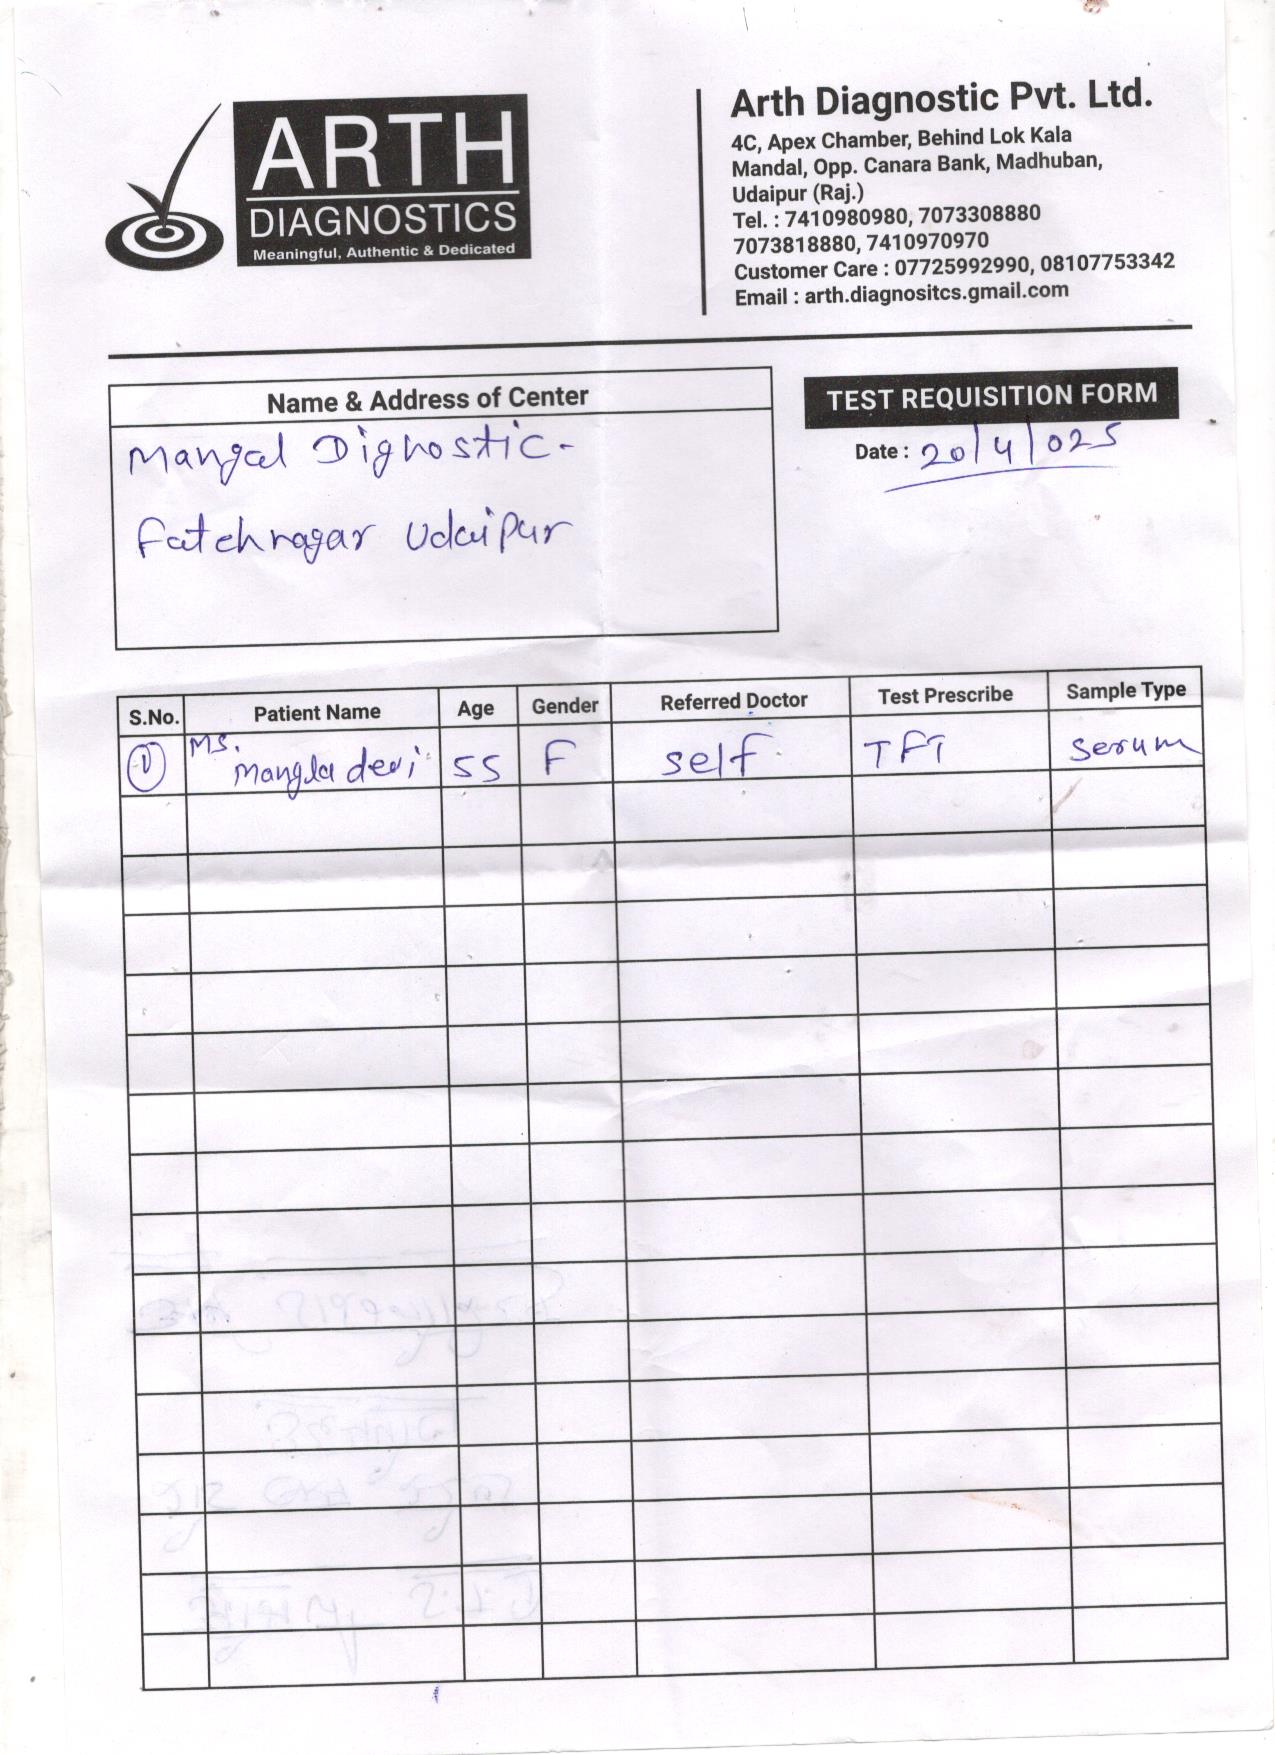 ARTH
DIAGNOSTICS
Meaningful, Authentic & Dedicated
Arth Diagnostic Pvt. Ltd.
4C, Apex Chamber, Behind Lok Kala
Mandal, Opp. Canara Bank, Madhuban,
Udaipur (Raj.)
Tel. : 7410980980, 7073308880
7073818880, 7410970970
Customer Care : 07725992990, 08107753342
Email : arth.diagnositcs.gmail.com
Name & Address of Center
Mangal Dignostic-
Fatehnagar Udaipur
TEST REQUISITION FORM
Date : 20/4/025
S.No. Patient Name Age Gender Referred Doctor Test Prescribe Sample Type
1 Ms. Mangla devi 55 F self TFT Serum